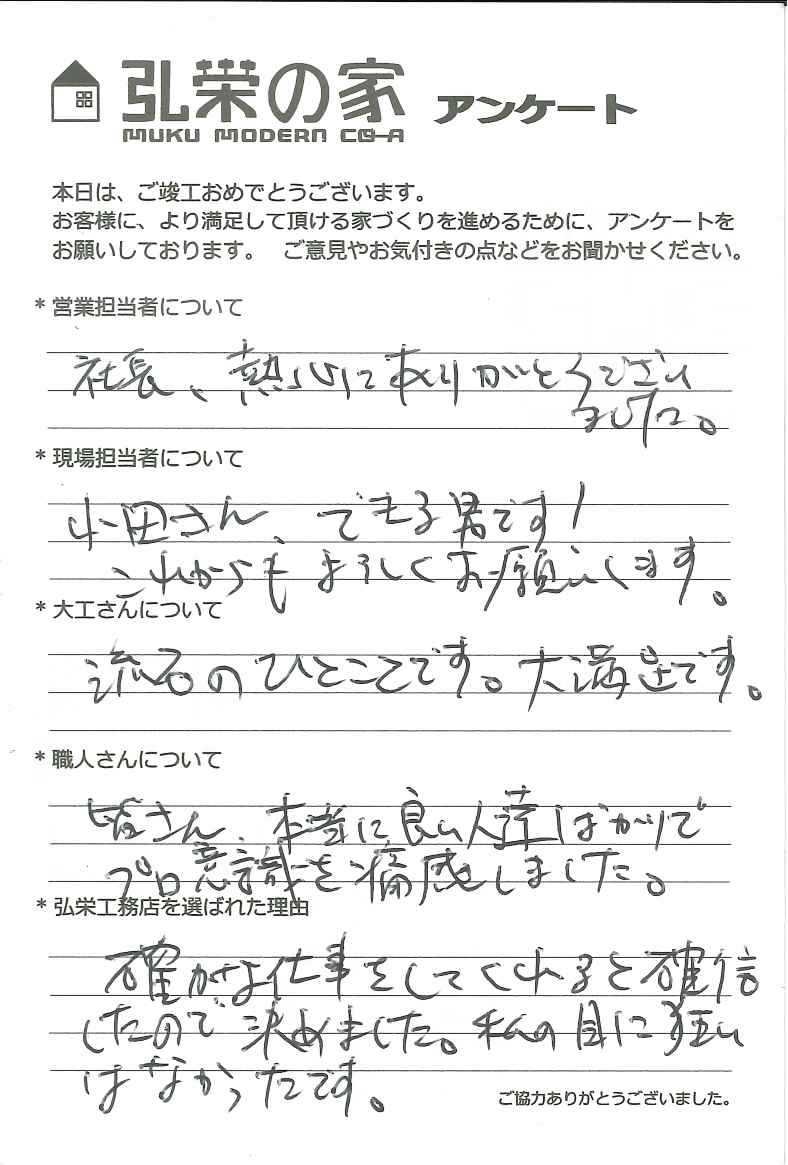 弘栄の家 アンケート
MUKU MODERN CO-A
本日は、ご竣工おめでとうございます。
お客様に、より満足して頂ける家づくりを進めるために、アンケートを
お願いしております。 ご意見やお気付きの点などをお聞かせください。
* 営業担当者について
社長、熱心にありがとうござい
ました。
* 現場担当者について
小田さん、できる男です!
これからもよろしくお願いします。
* 大工さんについて
流石のひとことです。大満足です。
* 職人さんについて
皆さん、本当に良い人達ばかりで
プロ意識を痛感しました。
* 弘栄工務店を選ばれた理由
確かな仕事をしてくれると確信
したので決めました。私の目に狂い
はなかったです。
ご協力ありがとうございました。